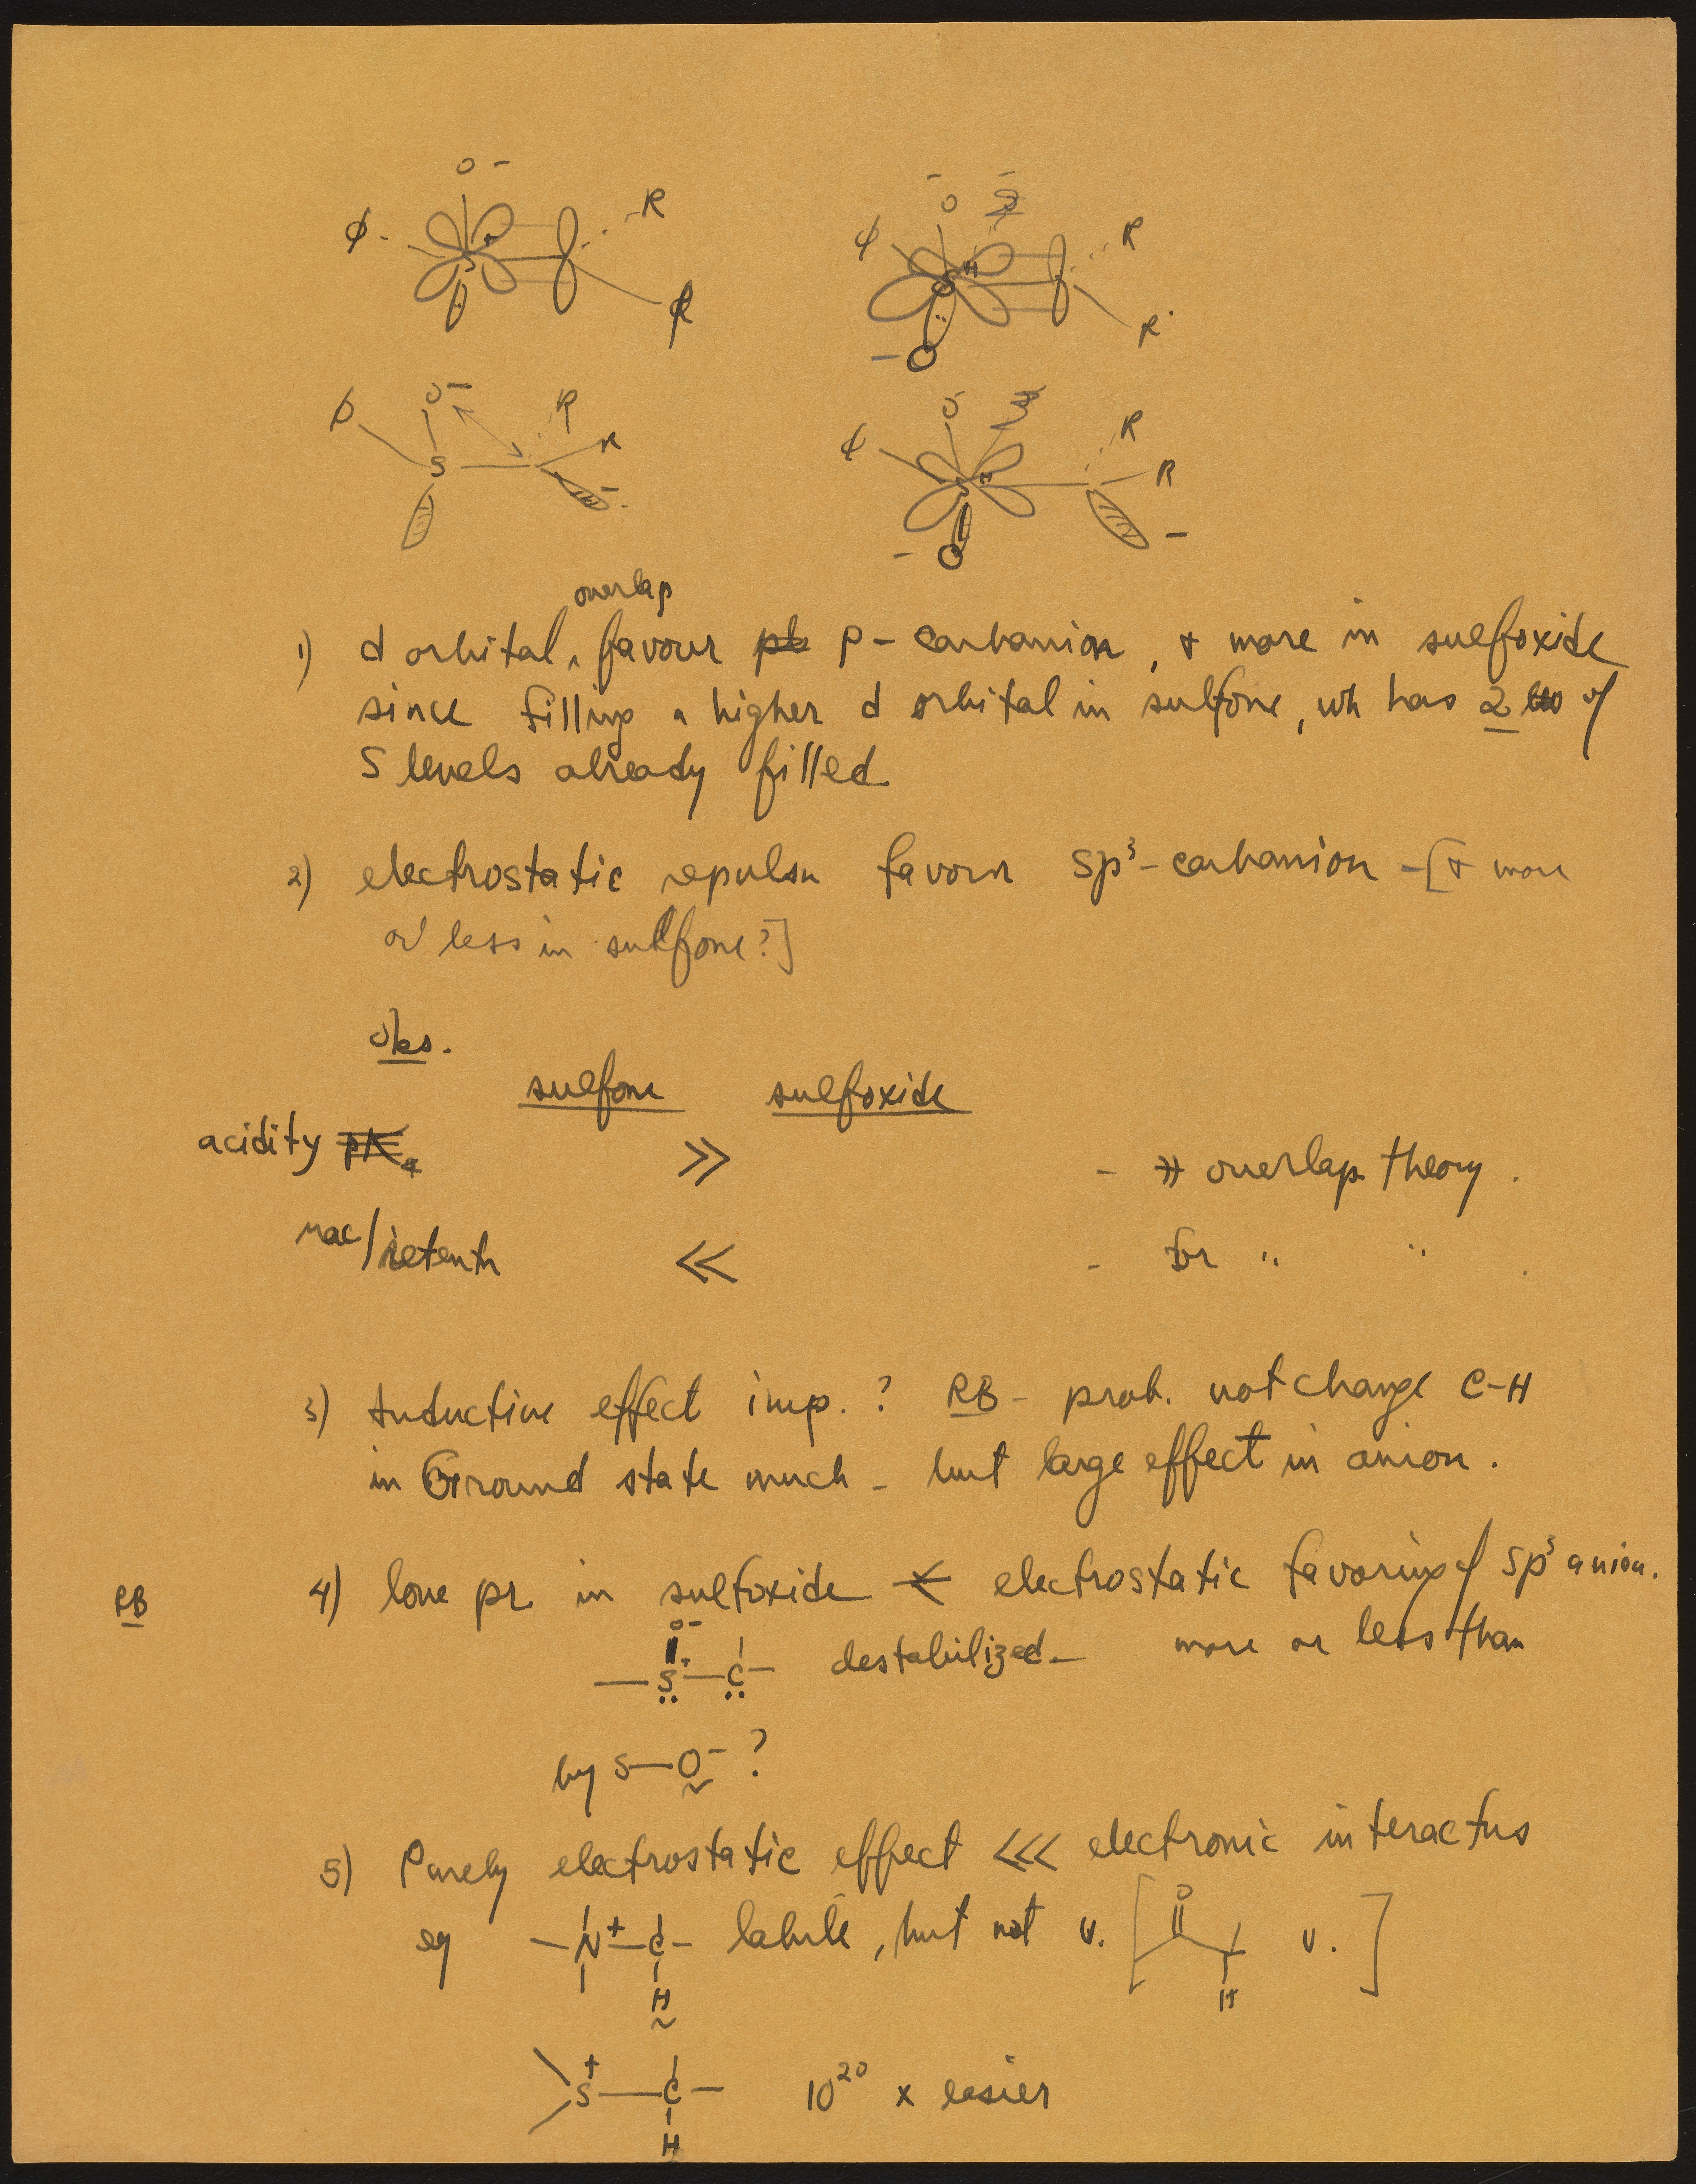 O -
ϕ
+
S
R
R
- O -
ϕ
S
H
R
R
- O
ϕ
O -
R
R
S
-
O -
ϕ
S
H
R
R
- O
-
overlap
1) d orbital ‸ favour p - carbanion , + more in sulfoxide
since filling a higher d orbital in sulfone, wh has 2 of
S levels already filled
2) electrostatic repulsn favour sp³-carbanion - [+ more
or less in sulfone?]
Obs.
sulfone sulfoxide
acidity pKa >> - overlap theory .
rac/retentn << - for " " .
3) Inductive effect imp. ? RB - prob. not change C-H
in Ground state much - but large effect in anion .
RB 4) lone pr. in sulfoxide electrostatic favoring of sp³ anion.
O -
- S - C - destabilized - more or less than
by S-O⁻ ?
5) Purely electrostatic effect <<< electronic interactns
eg - N⁺ - C - labile , but not v. [ O v. ]
H H
S⁺ - C - 10²⁰ x easier
H